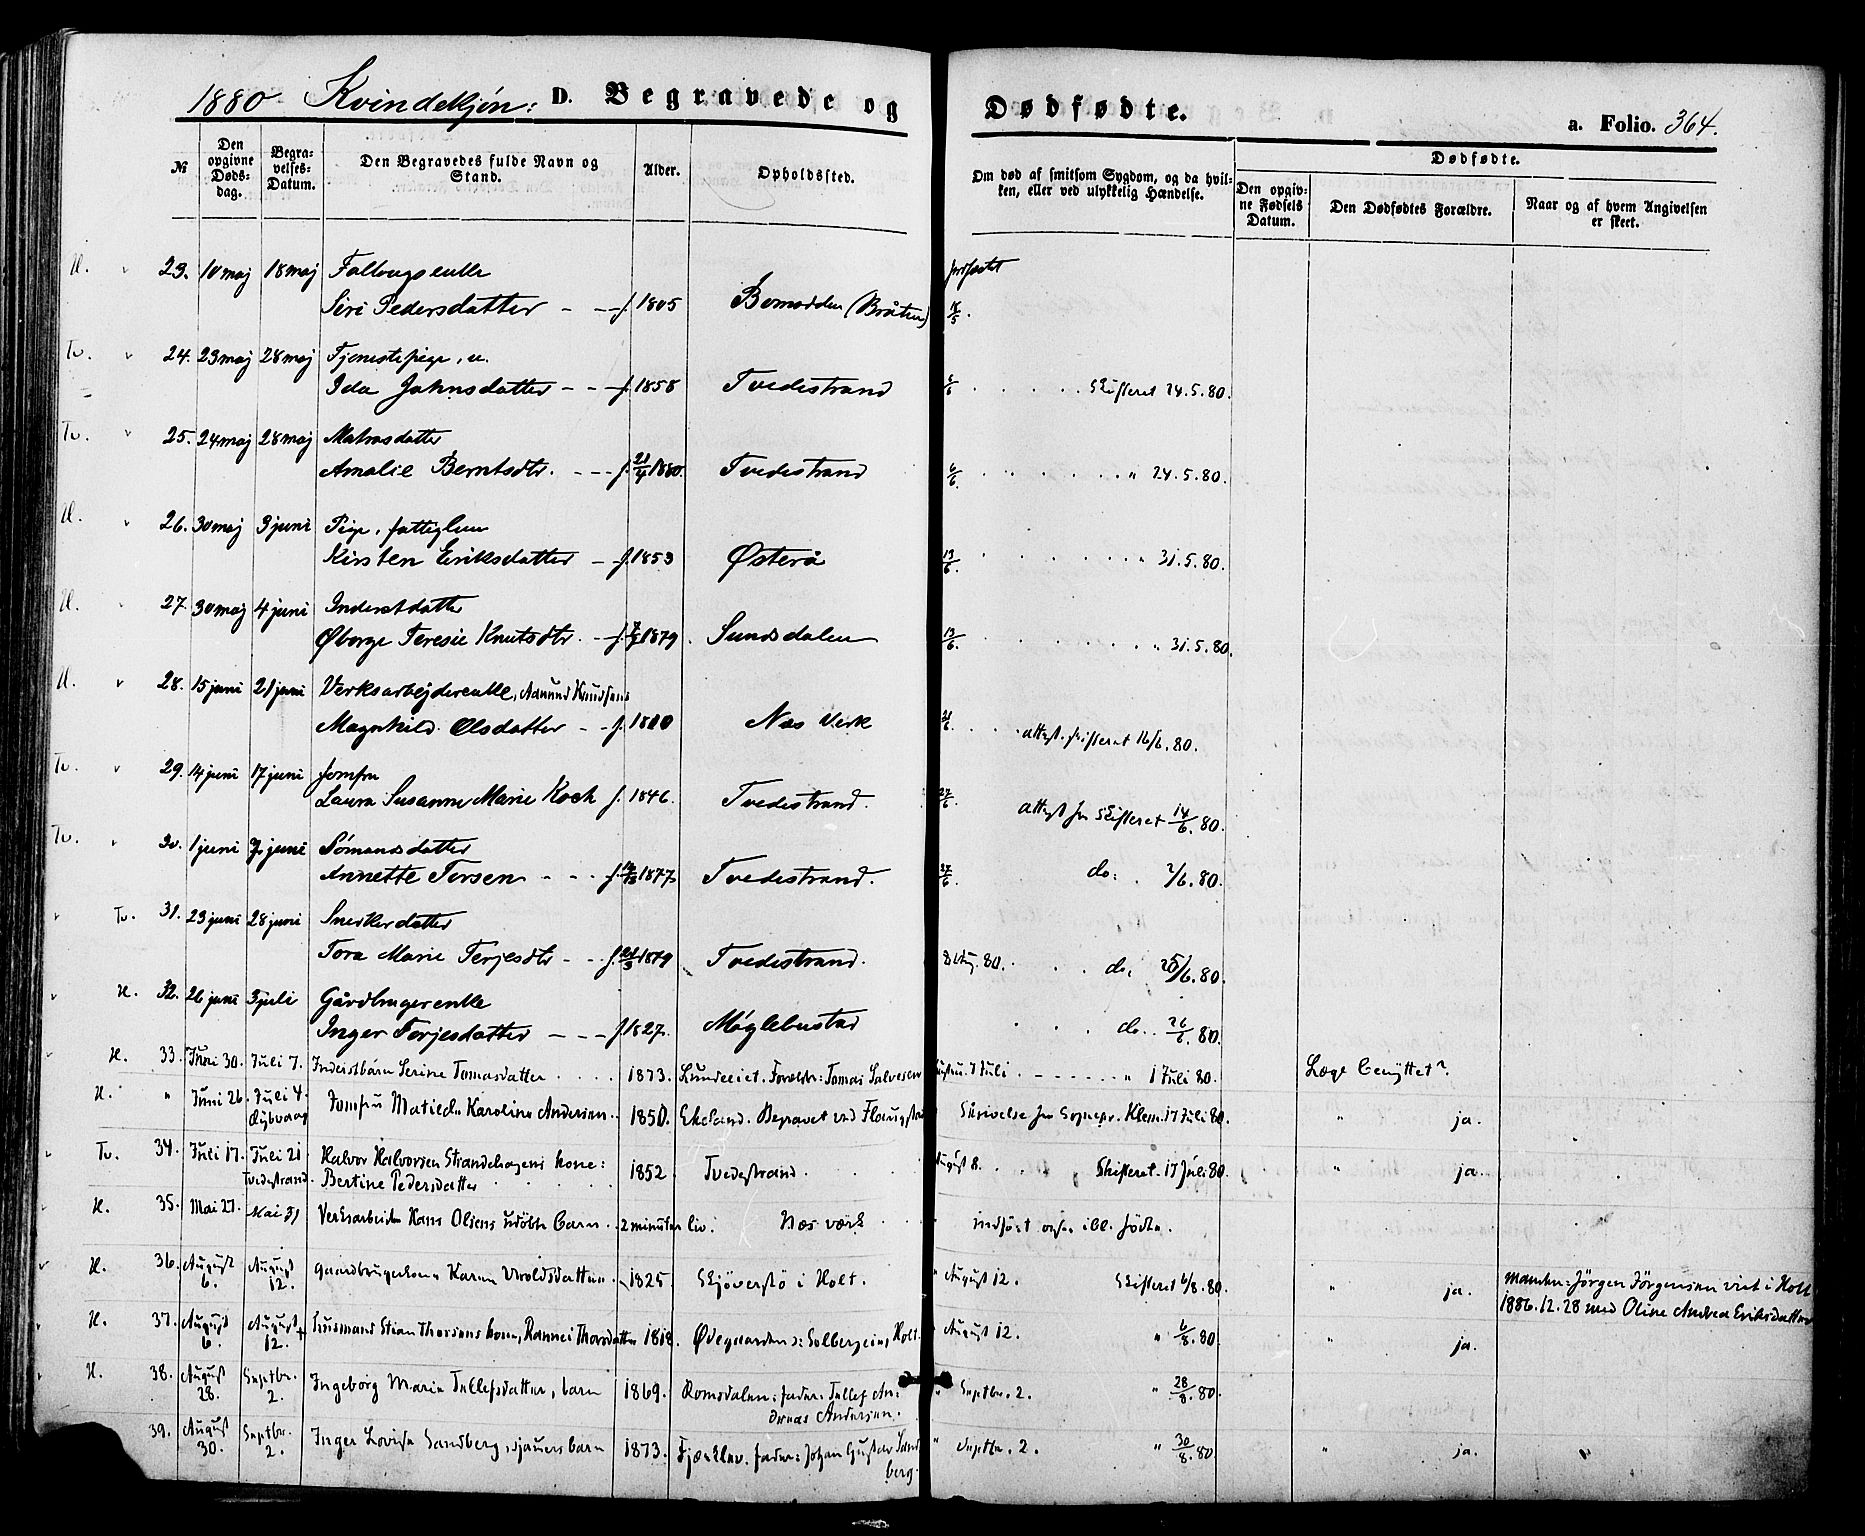 1880 Kvindekjøn: D. Begravede og Dødfødte. a. Folio. 364.
№
Den opgivne Døds-dag.
Begra-velses-Datum.
Den Begravedes fulde Navn og Stand.
Alder.
Opholdssted.
Om død af smitsom Sygdom, og da hvil-ken, eller ved ulykkelig Hændelse.
Dødfødte.
Den opgiv-ne Fødsels Datum.
Den Dødfødtes Forældre.
Naar og af hvem Angivelsen er skeet.
H. 23. 10 maj 18 maj
Siri Pedersdatter - - f. 1805 (Bråten)
Tv. 24. 23 maj 28 maj Tjenestepige, u.
Ida Jahnsdatter - - - f. 1858 Tvedestrand 6/6 Skifteret 24.5.80.
Tv. 25. 24 maj 28 maj Matrosdatter
Amalie Berntsdtr. - - - f. 1880. Tvedestrand 6/6. " 24.5.80.
H. 26. 30 maj 3 juni Pige, fattiglem
Kirsten Eriksdatter - f. 1853 Østerå 13/6. " 31.5.80.
H. 27. 30 maj 4 juni Inderstdatter
Teresie Knutsdtr. - - f. 1879. Sundsdalen 13/6. " 31.5.80.
H. 28. 15 juni 21 juni Verksarbejderenke, Aanund Knudsens
Magnhild Olsdatter - - f. Nes Verk attest. skifteret 16/6.80.
Tv. 29. 14 juni 17 juni Jomfru
Laura Susanne Marie Koch f. 1846. Tvedestrand. 27/6. attest fra skifteret 14/6.80.
Tv. 30. 1 juni 7 juni Sømandsdatter
Annette Torsen - - - f. 1877. Tvedestrand. 27/6. do: 2/6.80.
Tv. 31. 23 juni 28 juni Snedkerdatter
Tora Marie Terjesdtr - - f. 1879 Tvedestrand. 8 Aug. 80. do. 25/6.80
H. 32. 26 juni 3 juli Gårdbrugerenke
Inger Terjesdatter - - - f. 1827. Møglebustad do. 26/6.80.
H. 33. Juni 30. Juli 7. Inderstbarn Serine Tomasdatter 1873. Lundeeiet. Forældr: Tomas Salvesen 7 Juli " 1 Juli 80. Læge benyttet?
H. " Juni 26. Juli 4. Dybvaag Jomfru Matilde Karoline Andersen. 1850. Ekeland. Begravet ved Skrivelse fra Sognepr. Klem. 17 Juli 80. " ja.
Tv. 34. Juli 17. Juli 21. Tvedestrand. Halvor Halvorsen Strandehagens kone:
Bertine Pedersdatter 1852. Tvedestrand. August 8. Skifteret. 17 Juli 80. " ja.
H. 35. Mai 27. Mai 31 Verksarbeider Hans Olsens udöbte barn. 2 minuter liv. Næs værk indført ogsaa ibl. fødte.
H. 36. August 6. August 12. gaardbrugerkone Karen Uroldsdatter. 1825. Skjöverstö i Holt. " August 12. Skifteret 6/8.80. " ja. Manden: Jörgen Jörgensen viet i Holt
1886.12.28 med Oline Andrea Eriksdatter
H. 37. August 6. August 12. husmand Stian Thorsens kone, Thorsdatter 1818. Ødegaarden Solbergeie, Holt. " August 12. " 6/8.80. " ja.
H. 38. August 28. Septbr. 2. Ingeborg Marie Tellefsdatter, barn 1869. Romsdalen: fader: Tellef An-
dreas Andersen. " Septbr. 2. " 28/8.80.
39. August 30. Septbr. 2. Inger Lovise Sandberg, sjauers barn 1873. fader: Johan Gustav Sand
berg. " Septbr. 2. " 30/8.80. " ja. "